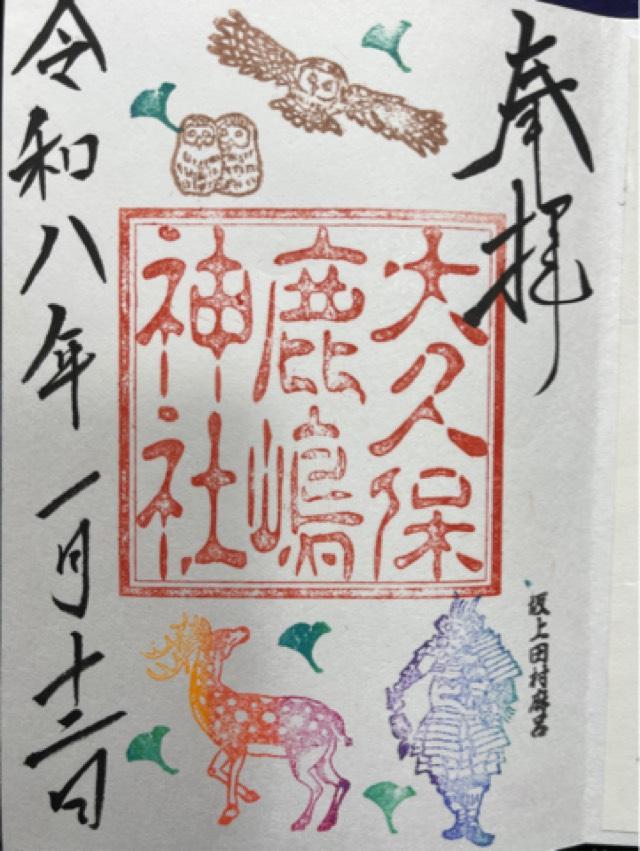 奉拝
大久保
鹿嶋
神社
坂上田村麻呂
令和八年一月十二日